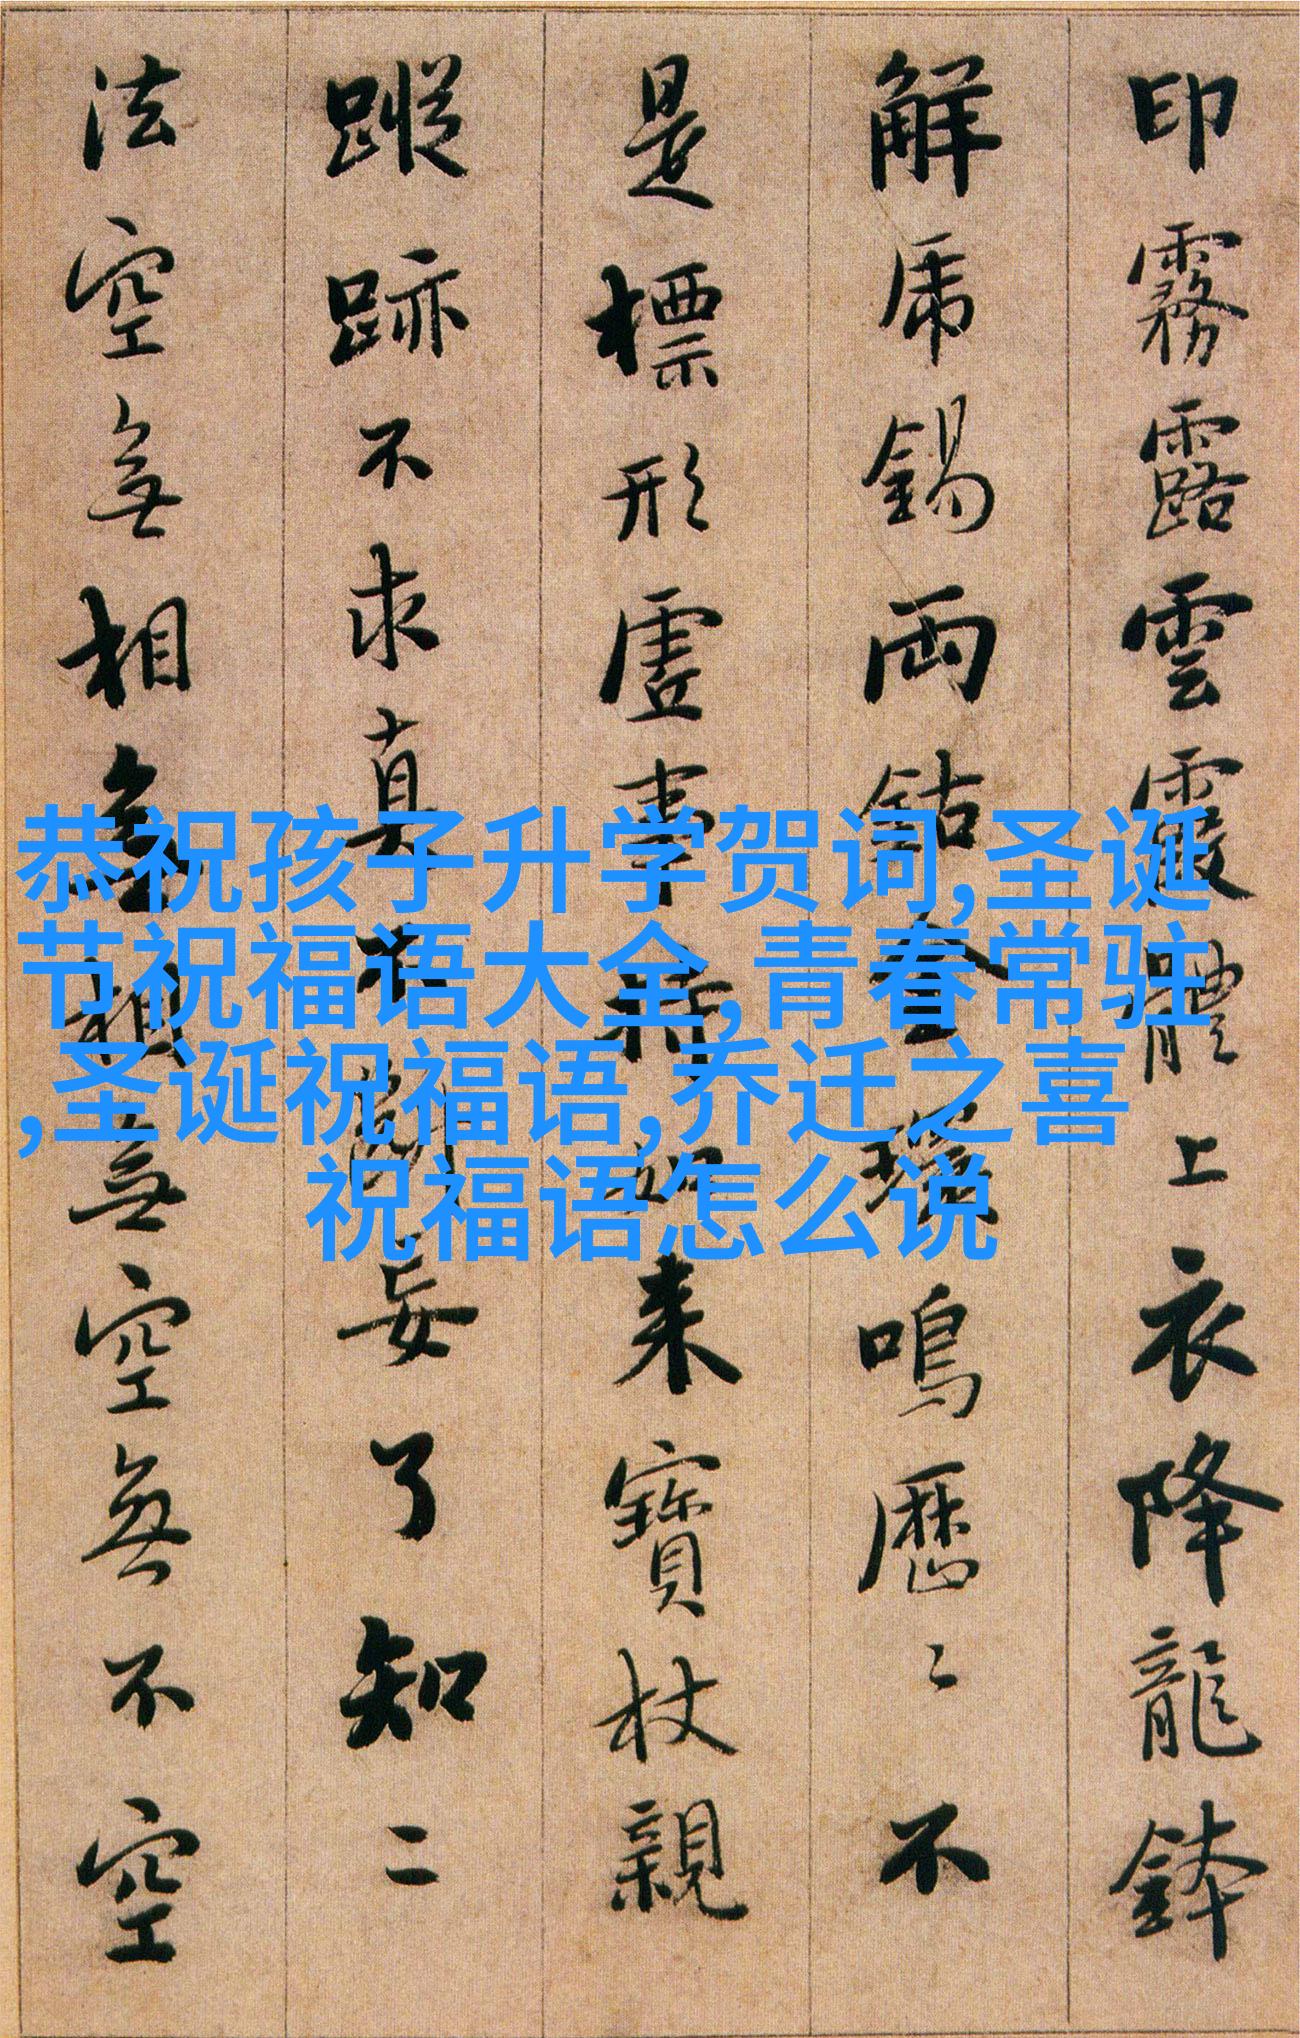 印霧露雲霞體上衣降龍鉢
解虎錫兩鈷金環鳴歷〻不
是標形虛事持如來寶杖親
蹤跡不求真不斷妄了知二
法空無相無相無空無不空
恭祝孩子升学贺词,圣诞
节祝福语大全,青春常驻
,圣诞祝福语,乔迁之喜
祝福语怎么说